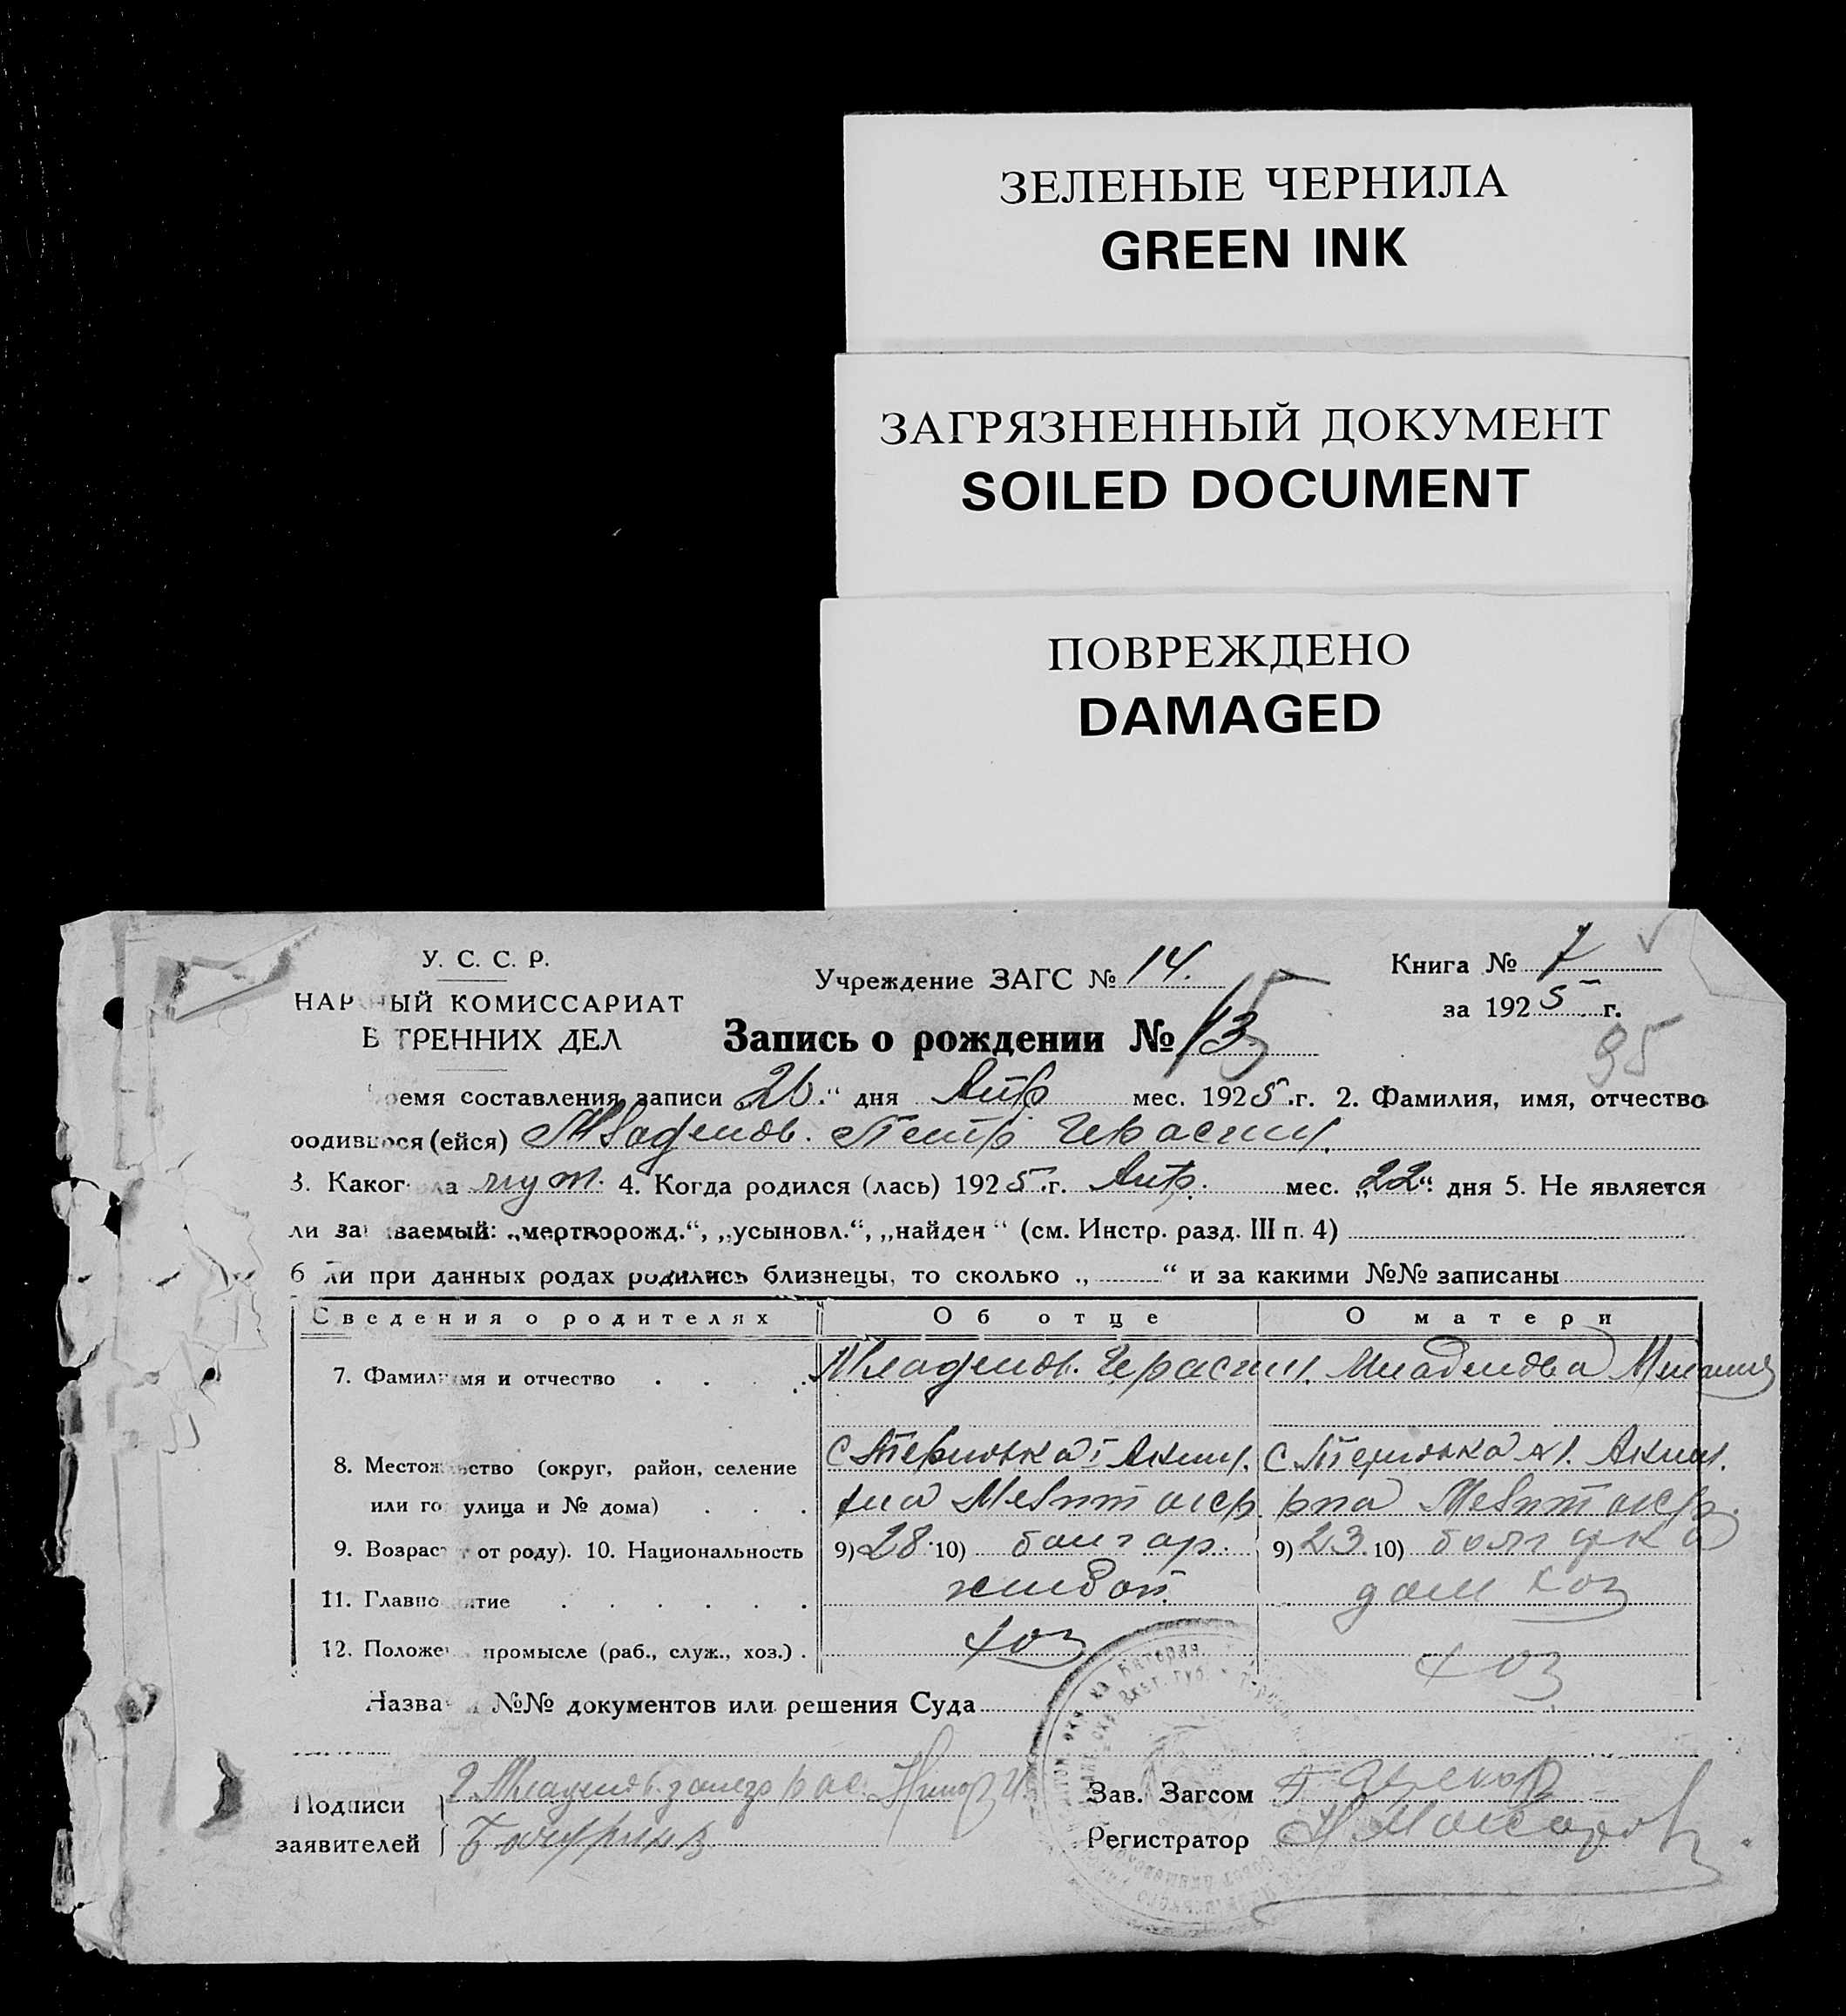 ЗЕЛЕНЫЕ ЧЕРНИЛА
GREEN INK
ЗАГРЯЗНЕННЫЙ ДОКУМЕНТ
SOILED DOCUMENT
ПОВРЕЖДЕНО
DAMAGED
У. С. С. Р.
НАР НЫЙ КОМИССАРИАТ
В ТРЕННИХ ДЕЛ
Учреждение ЗАГС № 14.
Книга № 7
за 1925 г.
Запись о рождении № 13
95
ремя составления записи 26." дня Апр мес. 1925.г. 2. Фамилия, имя, отчество
родившося (ейся) Младенов. Петр Герасим.
3. Каког ла муж. 4. Когда родился (лась) 1925.г. Апр. мес. „22" дня 5. Не является
ли за ваемый: „мертворожд.", „усыновл.", „найден" (см. Инстр. разд. III п. 4)
6 ли при данных родах родились близнецы, то сколько „ " и за какими №№ записаны
Сведения о родителях Об отце О матери
7. Фамил мя и отчество Младенов. Герасим. Младенова
8. Местож ьство (округ, район, селение С. Терновка Аким. С. Терновка Аким.
или го улица и № дома) Мелитоп окр. рна Мелитоп окр.
9. Возрас т от роду). 10. Национальность 9) 28. 10) болгар. 9) 23. 10) болгарка
11. Главно ятие дом хоз
12. Положе промысле (раб., служ., хоз.) хоз хоз
Назва №№ документов или решения Суда
Подписи Младенов
заявителей
Зав. Загсом
Регистратор